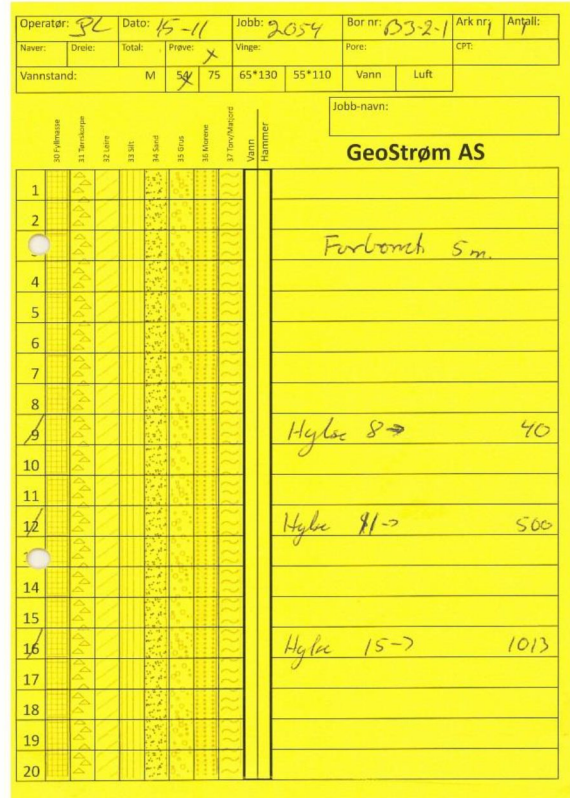 Operatør: PL Dato: 15-11 Jobb: 2054 Bor nr: B3-2-1 Ark nr: 1 Antall: 1
Naver: Dreie: Total: Prøve: X Vinge: Pore: CPT:
Vannstand: M 54 75 65*130 55*110 Vann Luft
Jobb-navn:
30 Fyllmasse 31 Tørrskorpe 32 Leire 33 Silt 34 Sand 35 Grus 36 Morene 37 Torv/Matjord Vann Hammer
GeoStrøm AS
1
2
Forboret 5 m.
4
5
6
7
8
9 Hylse 8-> 40
10
11
12 Hylse 11-> 500
14
15
16 Hylse 15-> 1013
17
18
19
20